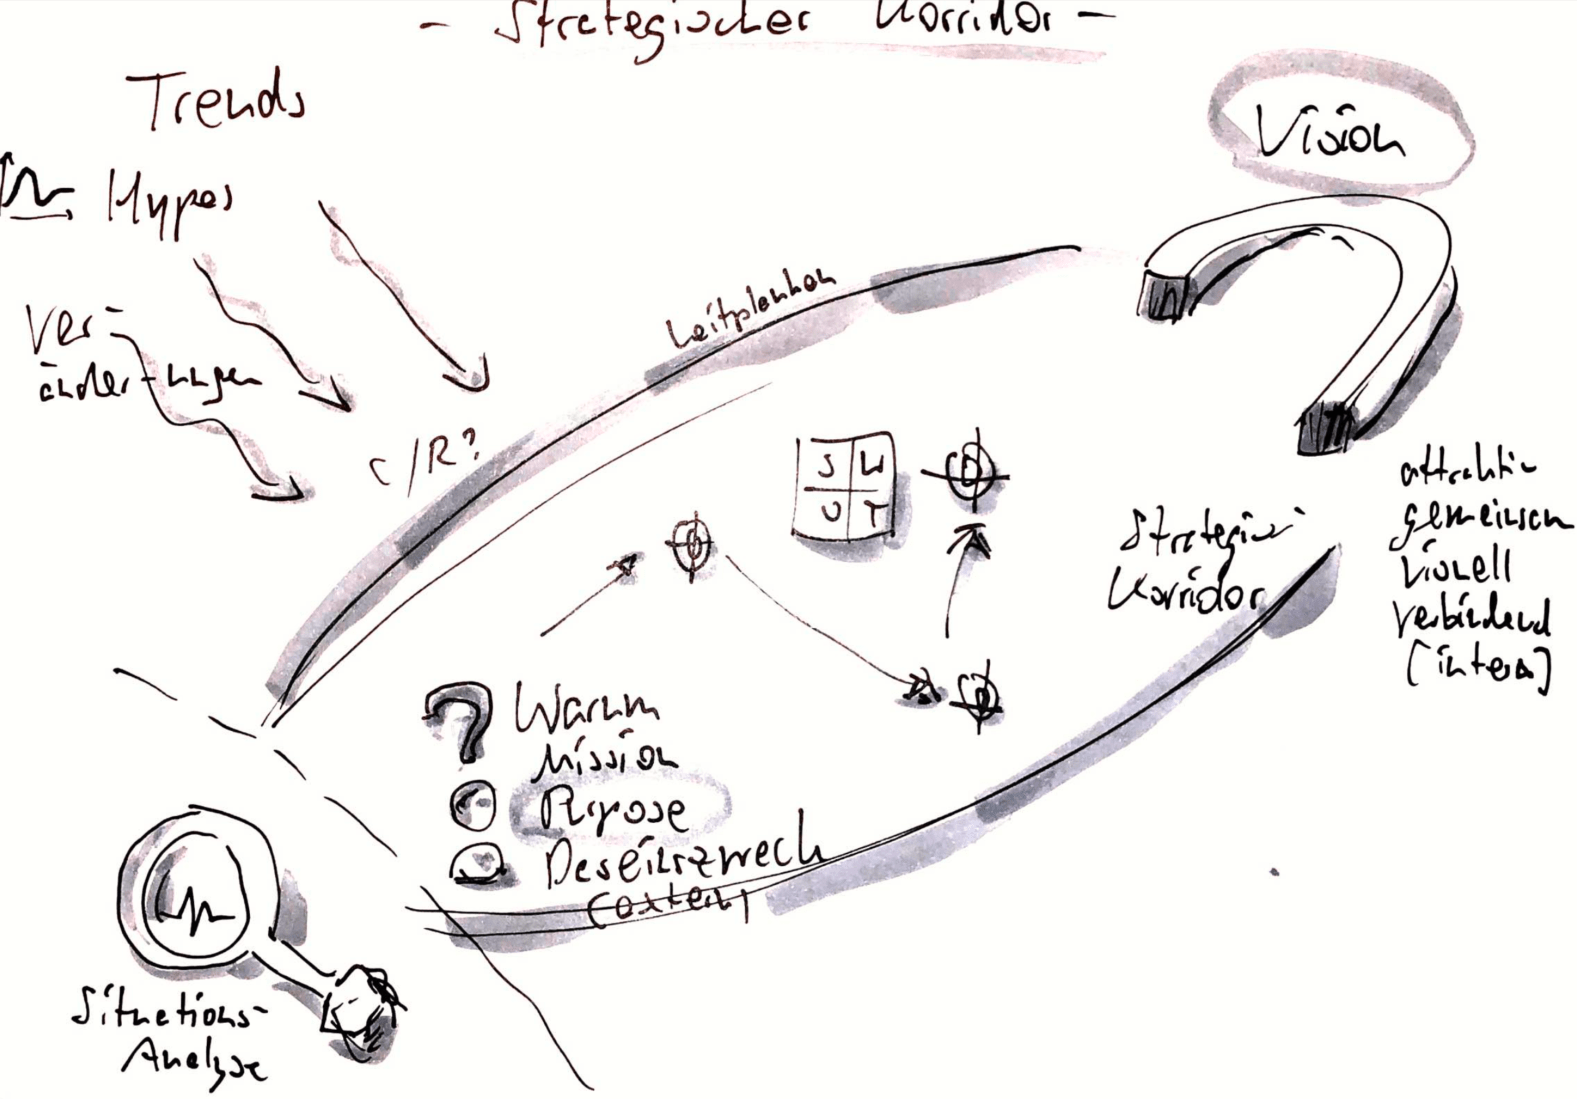 - Strategischer Korridor -
Trends
Hypes
Ver-
änder-ungen
C/R?
Leitplanken
Vision
S W
O T
Strategi
Korridor
attraktiv
gemeinsam
visuell
verbindend
[intern]
Warum
Mission
Purpose
Daseinszweck
[extern]
Situations-
Analyse